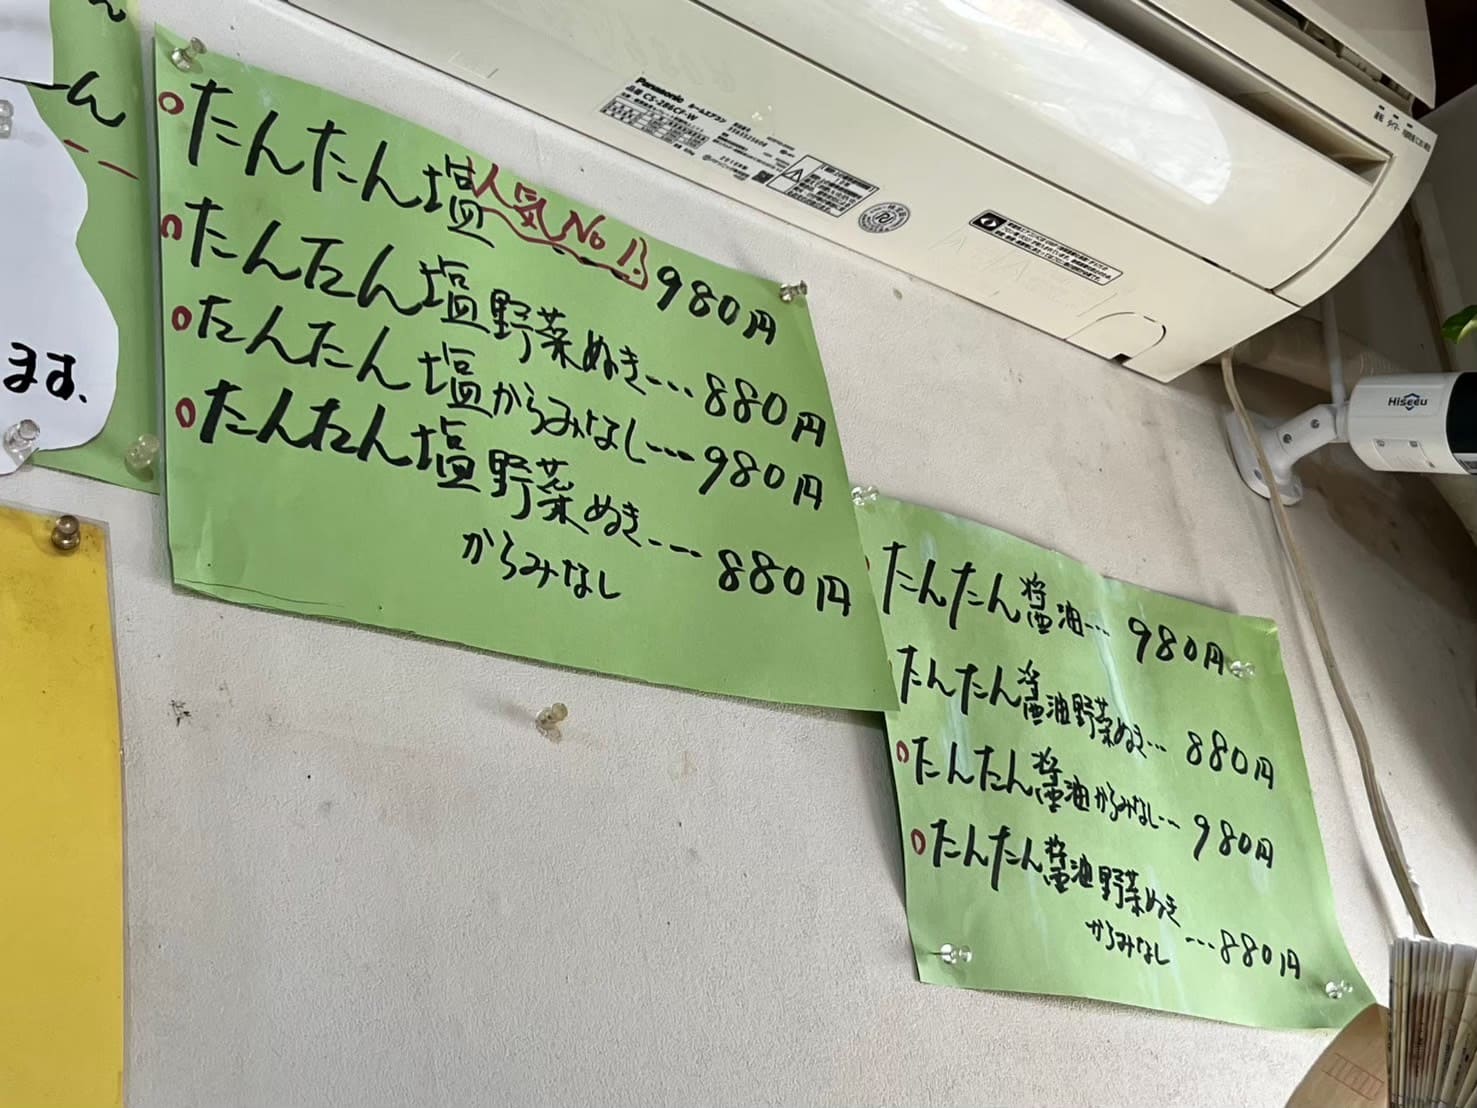 ん
ーん
ます、
たんたん塩 人気No1! 980円
たんたん塩野菜ぬき…880円
たんたん塩からみなし…980円
たんたん塩野菜ぬき…880円
からみなし
たんたん醤油…980円
たんたん醤油野菜ぬき…880円
たんたん醤油からみなし…980円
たんたん醤油野菜ぬき
からみなし…880円
Panasonic ルームエアコン
品番 CS-286CF-W
Hiseeu